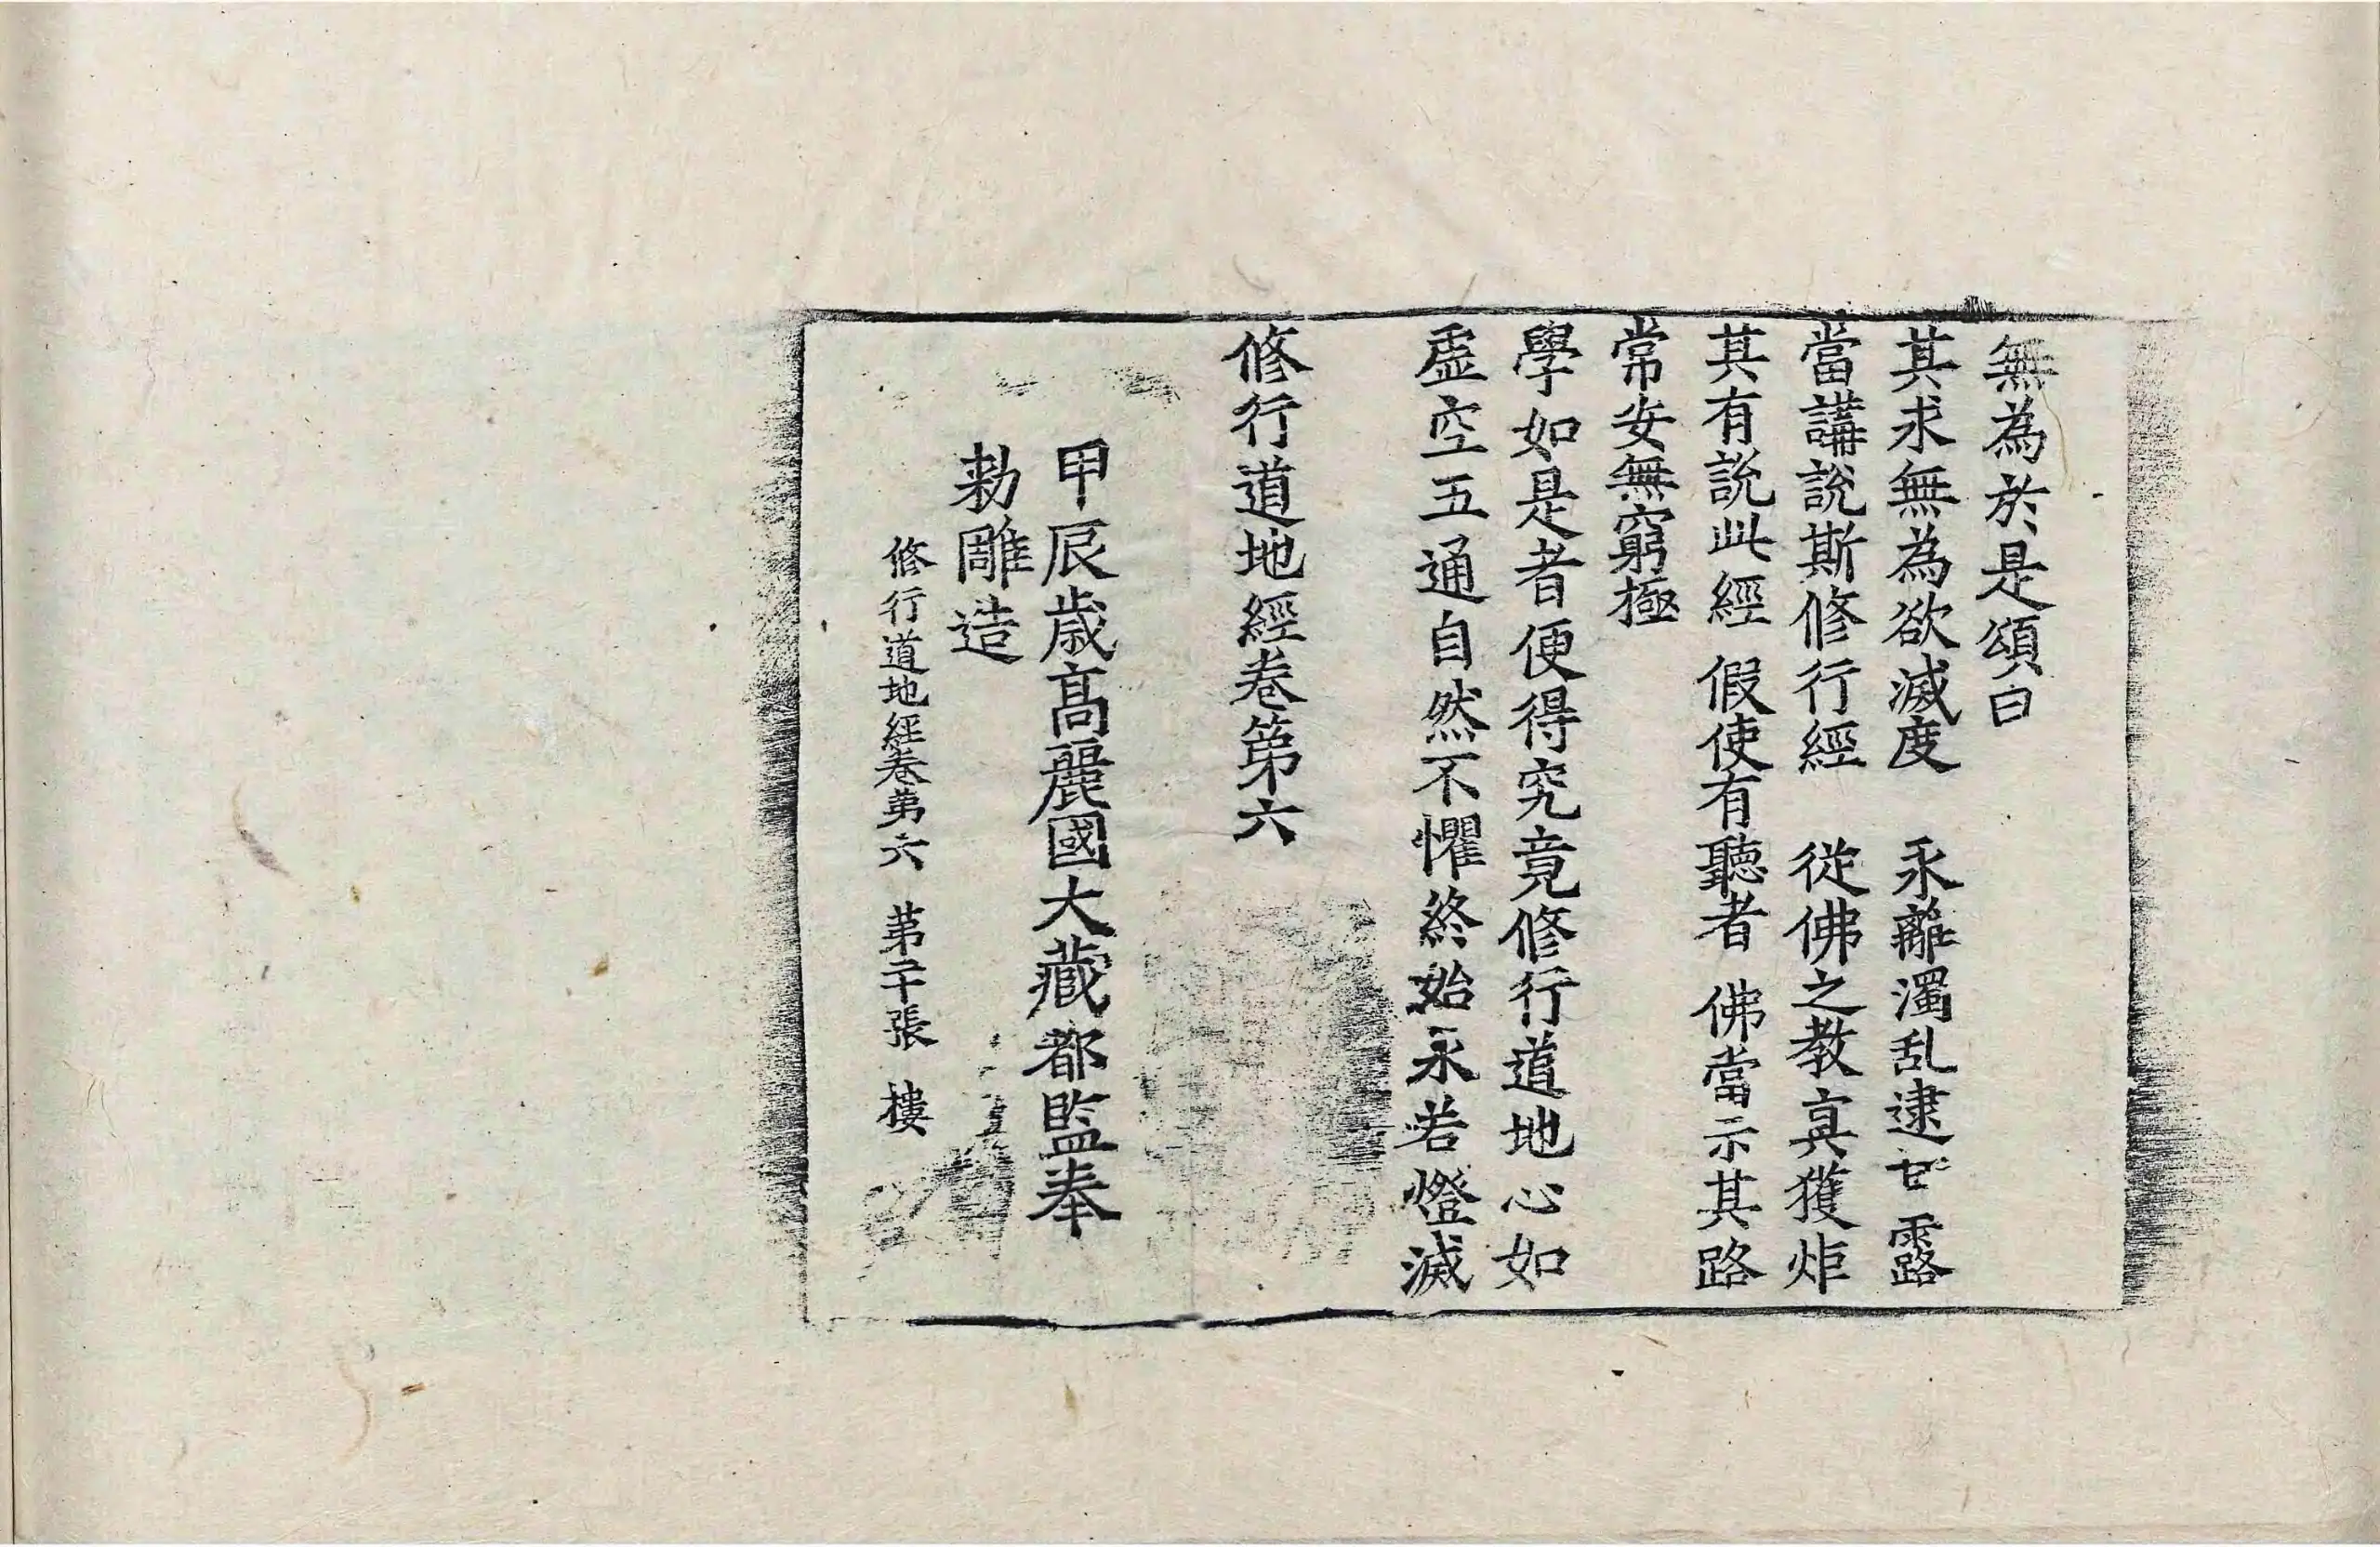 無為於是頌曰
其求無為欲滅度　永離濁乱逮甘露
當講說斯修行經　從佛之教真獲炬
其有說此經　假使有聽者　佛當示其路
常安無窮極
學如是者便得究竟修行道地心如
虛空五通自然不懼終始永若燈滅
修行道地經卷第六
甲辰歲高麗國大藏都監奉
勅雕造
修行道地經卷第六　第二十張　樓